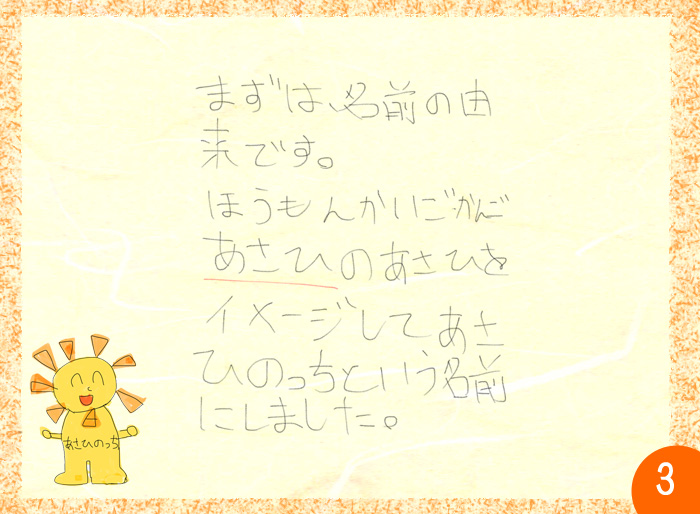 まずは、名前の由
来です。
ほうもんかいごかんご
あさひのあさひを
イメージしてあさ
ひのっちという名前
にしました。
あさひのっち
3